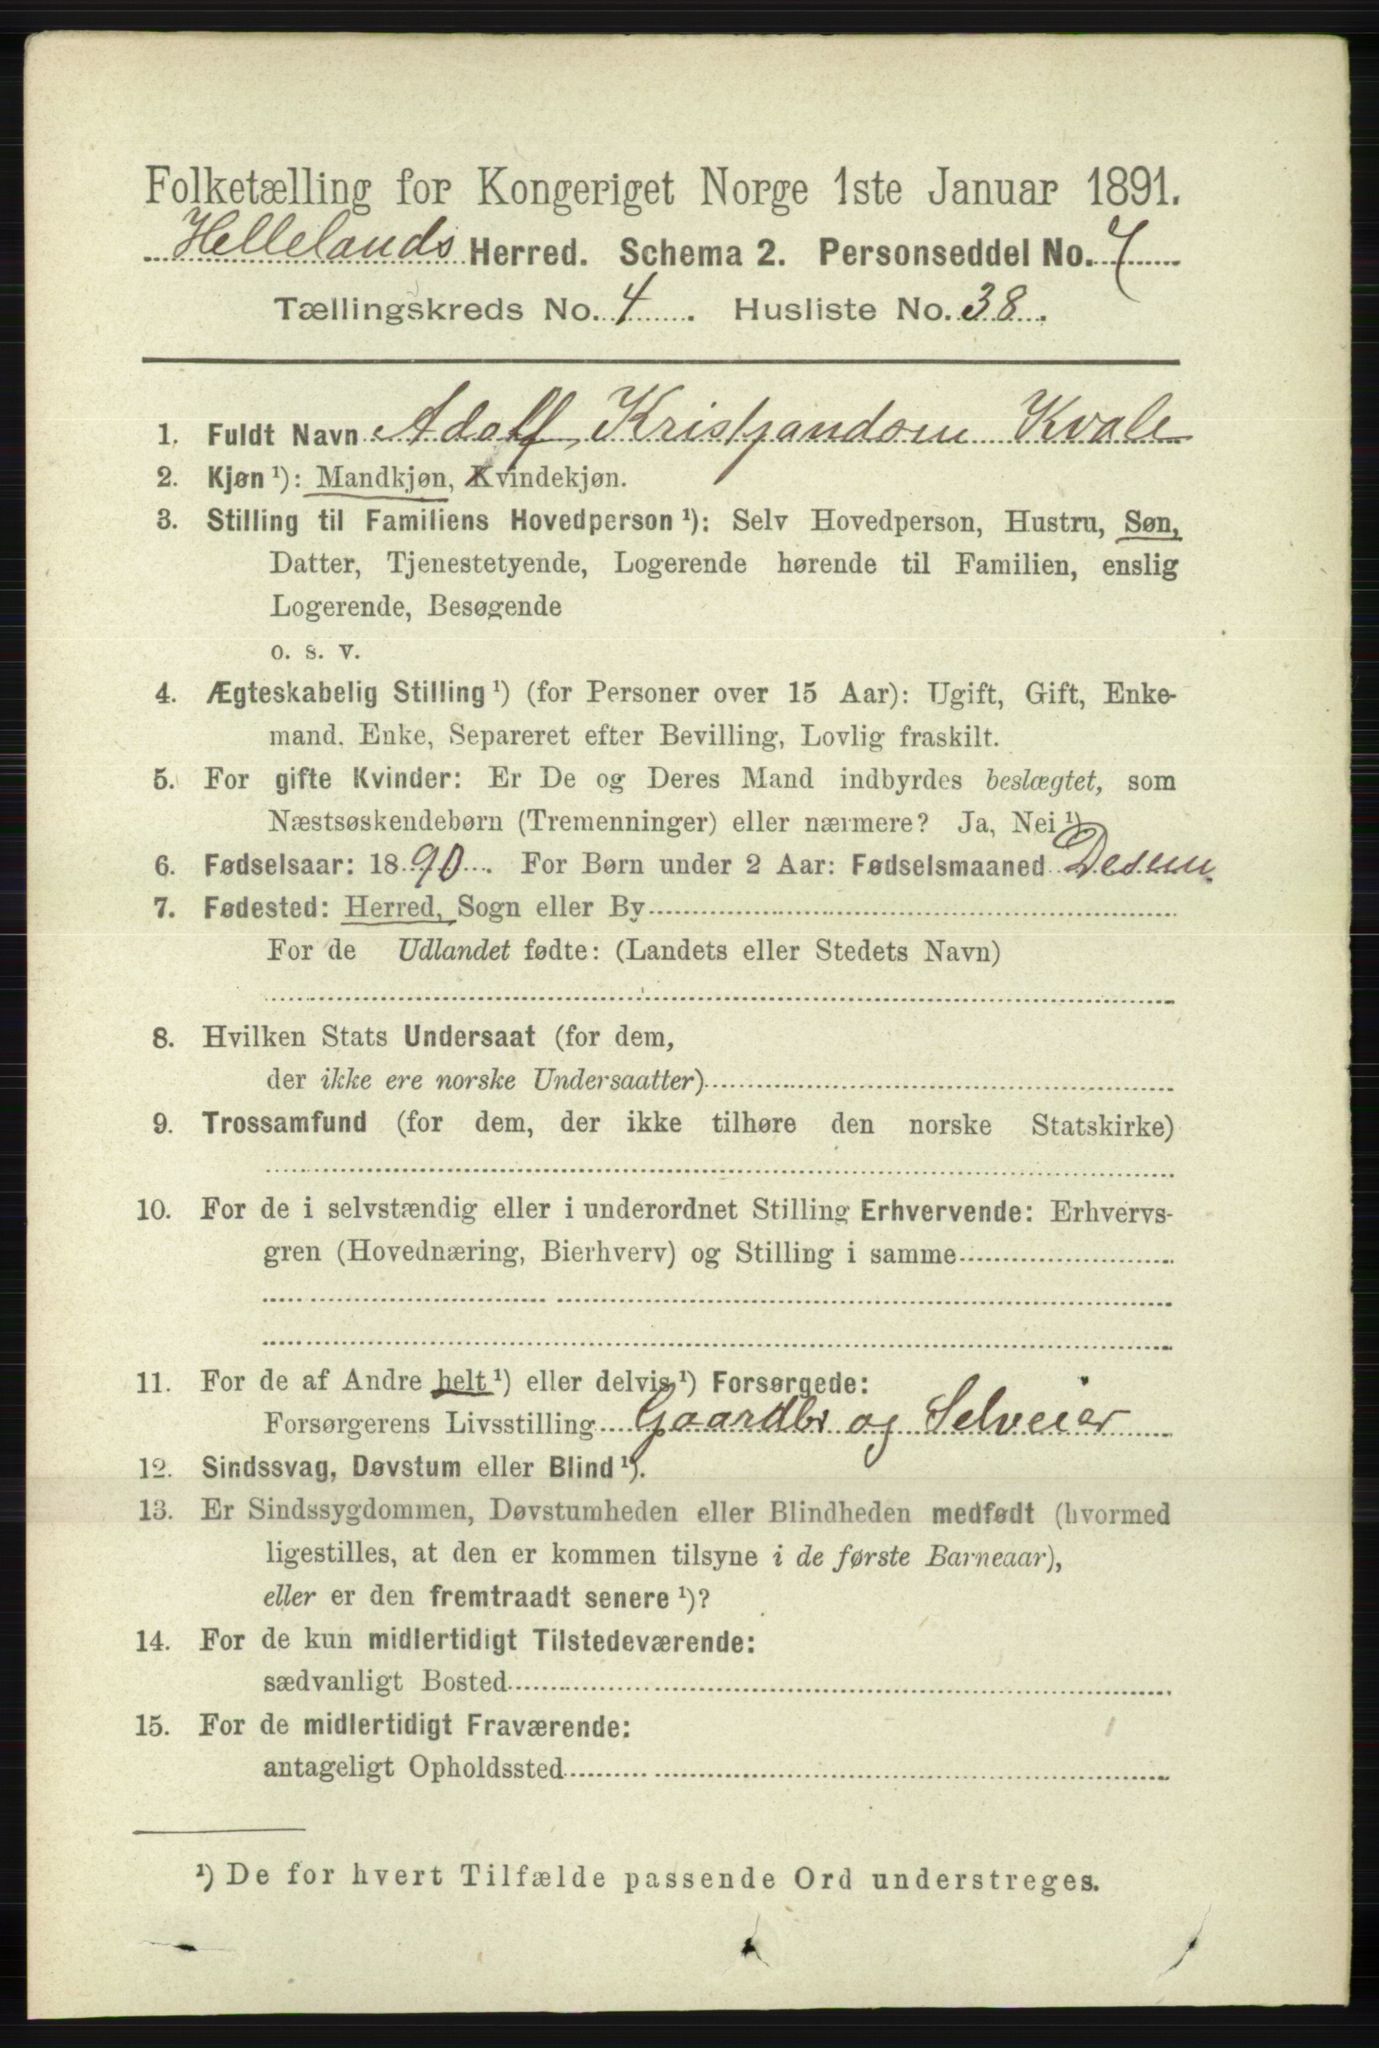 Folketælling for Kongeriget Norge 1ste Januar 1891.
Hellelands Herred. Schema 2. Personseddel No. 7
Tællingskreds No. 4. Husliste No. 38.
1. Fuldt Navn Adolf Kristjandsen Kvale
2. Kjøn ¹): Mandkjøn, Kvindekjøn.
3. Stilling til Familiens Hovedperson ¹): Selv Hovedperson, Hustru, Søn,
Datter, Tjenestetyende, Logerende hørende til Familien, enslig
Logerende, Besøgende
o. s. v.
4. Ægteskabelig Stilling ¹) (for Personer over 15 Aar): Ugift, Gift, Enke-
mand, Enke, Separeret efter Bevilling, Lovlig fraskilt.
5. For gifte Kvinder: Er De og Deres Mand indbyrdes beslægtet, som
Næstsøskendebørn (Tremenninger) eller nærmere? Ja, Nei ¹)
6. Fødselsaar: 1890. For Børn under 2 Aar: Fødselsmaaned Desem.
7. Fødested: Herred, Sogn eller By
For de Udlandet fødte: (Landets eller Stedets Navn)
8. Hvilken Stats Undersaat (for dem,
der ikke ere norske Undersaatter)
9. Trossamfund (for dem, der ikke tilhøre den norske Statskirke)
10. For de i selvstændig eller i underordnet Stilling Erhvervende: Erhvervs-
gren (Hovednæring, Bierhverv) og Stilling i samme
11. For de af Andre helt ¹) eller delvis ¹) Forsørgede:
Forsørgerens Livsstilling Gaardbr og Selveier
12. Sindssvag, Døvstum eller Blind ¹).
13. Er Sindssygdommen, Døvstumheden eller Blindheden medfødt (hvormed
ligestilles, at den er kommen tilsyne i de første Barneaar),
eller er den fremtraadt senere ¹)?
14. For de kun midlertidigt Tilstedeværende:
sædvanligt Bosted
15. For de midlertidigt Fraværende:
antageligt Opholdssted
¹) De for hvert Tilfælde passende Ord understreges.